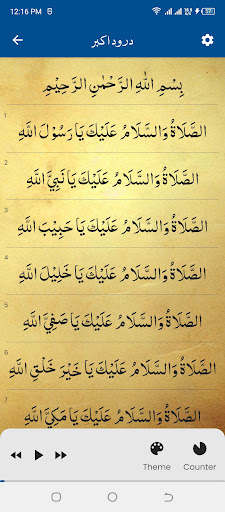 12:16 PM
درود اکبر
بِسْمِ اللهِ الرَّحْمٰنِ الرَّحِيْمِ
اَلصَّلَاةُ وَالسَّلَامُ عَلَيْكَ يَا رَسُوْلَ اللَّهِ
1
اَلصَّلَاةُ وَالسَّلَامُ عَلَيْكَ يَا نَبِيَّ اللَّهِ
2
اَلصَّلَاةُ وَالسَّلَامُ عَلَيْكَ يَا حَبِيْبَ اللَّهِ
3
اَلصَّلَاةُ وَالسَّلَامُ عَلَيْكَ يَا خَلِيْلَ اللَّهِ
4
اَلصَّلَاةُ وَالسَّلَامُ عَلَيْكَ يَا صَفِيَّ اللَّهِ
5
اَلصَّلَاةُ وَالسَّلَامُ عَلَيْكَ يَا خَيْرَ خَلْقِ اللَّهِ
6
اَلصَّلَاةُ وَالسَّلَامُ عَلَيْكَ يَا مَكِّيَّ اللَّهِ
7
Theme Counter